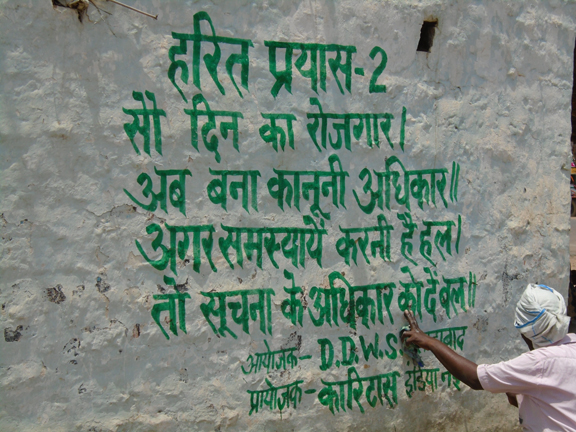 हरित प्रयास-2
सौ दिन का रोजगार।
अब बना कानूनी अधिकार॥
अगर समस्यायें करनी है हल।
तो सूचना के अधिकार को दें बल॥
आयोजक- D.D.W.S.
प्रायोजक- कारिटास इंडिया